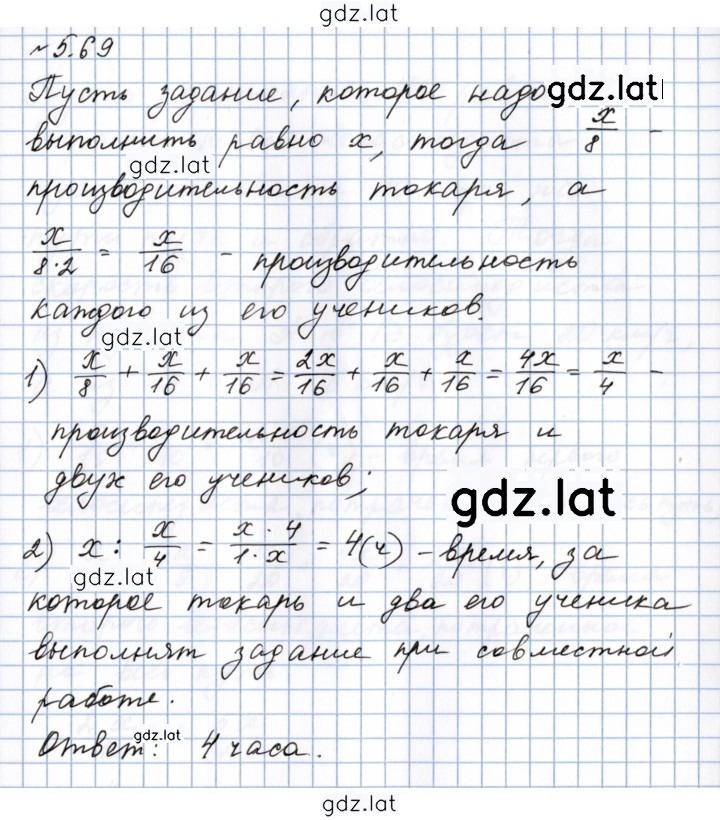 gdz.lat
№ 5.69
Пусть задание, которое надо gdz.lat
выполнить равно x, тогда x/8 -
gdz.lat
производительность токаря, а
x/8·2 = x/16 - производительность
каждого из его учеников.
gdz.lat
1) x/8 + x/16 + x/16 = 2x/16 + x/16 + x/16 = 4x/16 = x/4 -
производительность токаря и
двух его учеников;
gdz.lat
2) x : x/4 = x · 4/1 · x = 4(ч) - время, за
gdz.lat
которое токарь и два его ученика
выполнят задание при совместной
работе.
Ответ: gdz.lat 4 часа.
gdz.lat